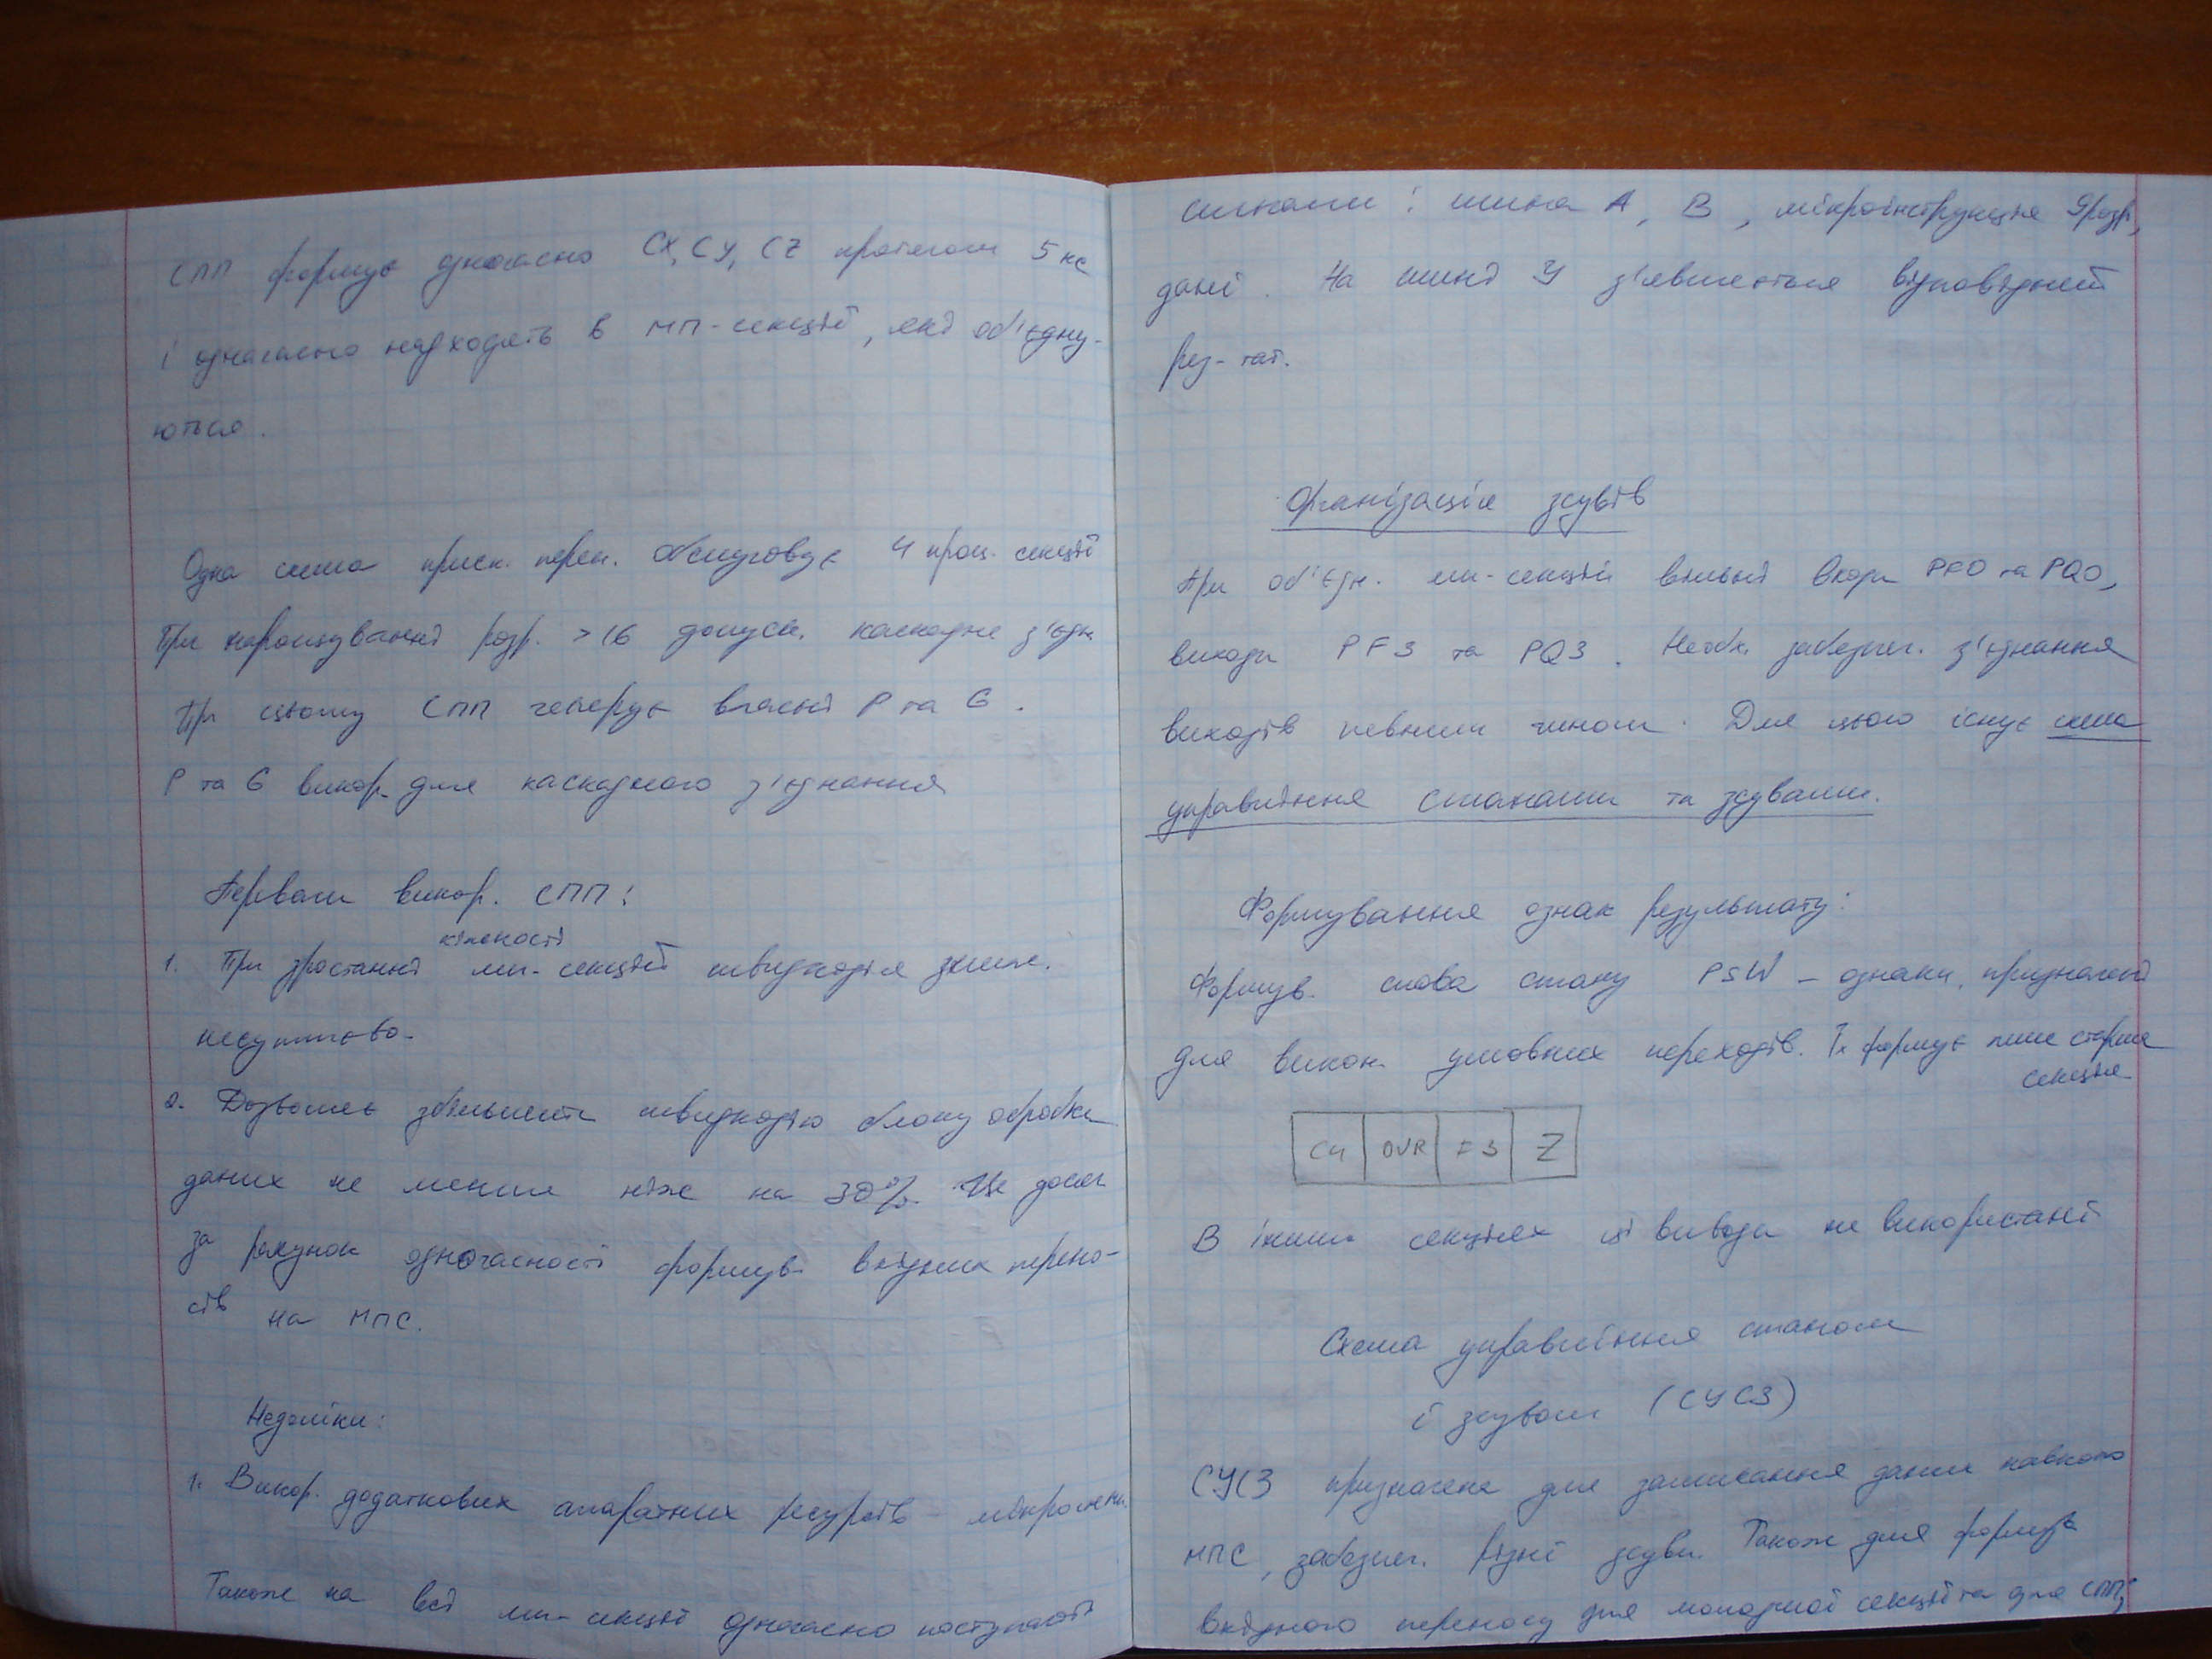 СПП формує одночасно CX, CY, CZ протягом 5 нс
і одночасно надходять в МП-секції, які об'єдну-
ються.
Одна схема приск. перен. обслуговує 4 проц. секції
При нарощуванні розр. >16 допуск. каскадне з'єдн.
При цьому СПП генерує власні P та G.
P та G викор. для каскадного з'єднання
Переваги викор. СПП:
кількості
1. При зростанні мп-секцій швидкодія зниж.
несуттєво.
2. Дозволяє збільшити швидкодію блоку обробки
даних не менше ніж на 30%. Це досяг
за рахунок одночасності формув. вхідних перено-
сів на МПС.
Недоліки:
1. Викор. додаткових апаратних ресурсів - мікросхем.
Також на всі мп-секції одночасно поступають
сигнали: шина A, B, мікроінструкція 9розр,
дані. На шині Y з'явиться відповідний
рез-тат.
Організація зсувів
При об'єдн. мп-секцій вільні входи PF0 та PQ0,
виходи PF3 та PQ3. Необх. забезпеч. з'єднання
виходів певним чином. Для цього існує схема
управління станами та зсувами.
Формування ознак результату:
Формув. слова стану PSW - ознаки, призначені
для викон. умовних переходів. Їх формує лише старша
секція
C4 OVR F3 Z
В інших секціях ці виводи не використані
Схема управління станом
і зсувом (СУСЗ)
СУСЗ призначена для замикання даних навколо
МПС, забезпеч. різні зсуви. Також для формув
вхідного переносу для молодшої секції та для СПП;